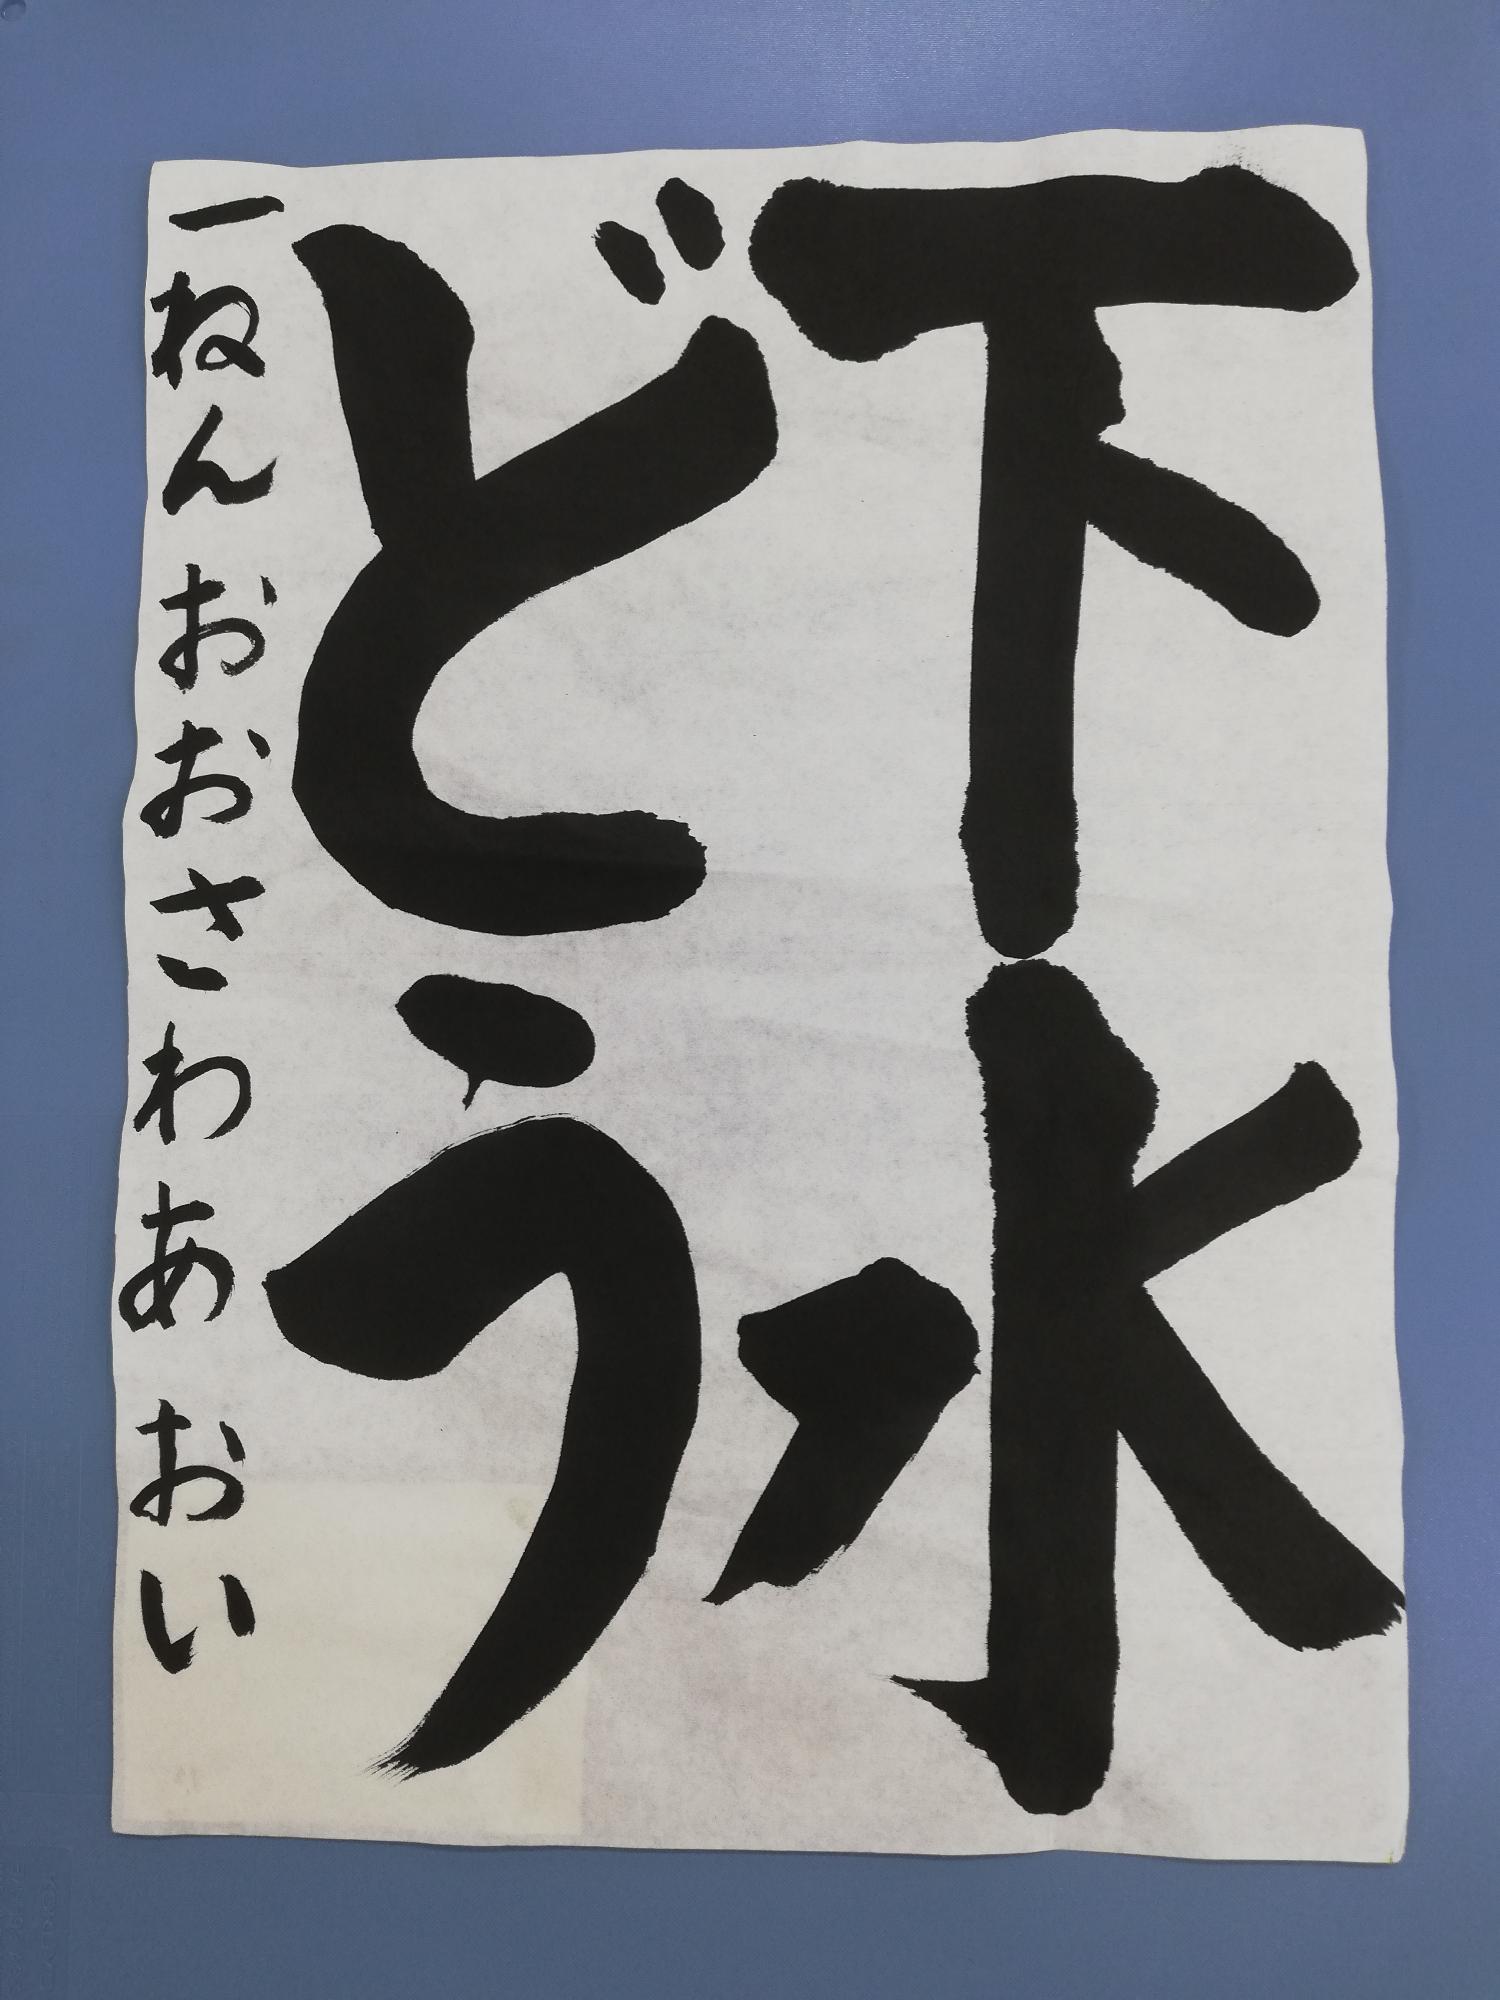 下水
どう
一ねんおおさわあおい